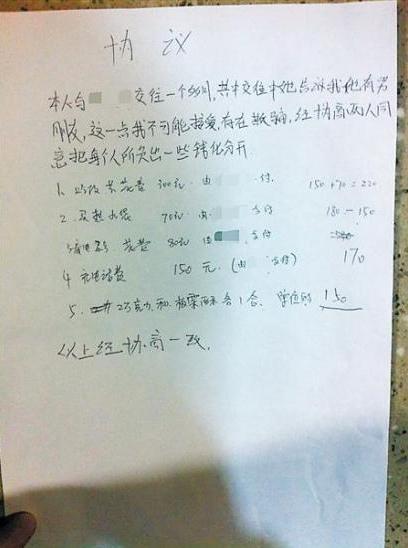 协 议
本人与 交往一个多月,其中交往中她告诉我他有男
朋友,这一点我不可能接爱,存在欺骗,经协商两人同
意把每个人所负出一些钱化分开.
1. 共花费 300元. 由 付. 150+70=220
2. 水袋 70元 由 支付 180-150
3. 花费 80元 由 支付
4. 充电话费 150元. (由 支付) 170
5. 25克 和 各1合. 价值约 150
以上经协商一致.